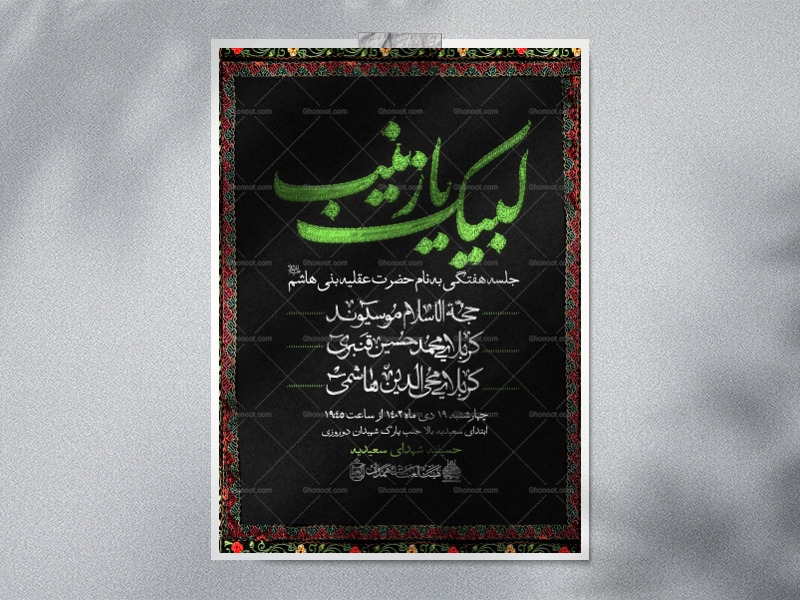 لبیک یا زینب
جلسه هفتگی به نام حضرت عقلیه بنی هاشم
حجة الاسلام موسیوند
کربلایی محمد حسین قنبری
کربلایی محی الدین هاشمی
چهارشنبه ۱۹ دی ماه ۱۴۰۲ از ساعت ۱۹:۴۵
ابتدای سعیدیه بالا جنب پارک شهیدان دوروزی
حسینیه شهدای سعیدیه
Ghonoot.com